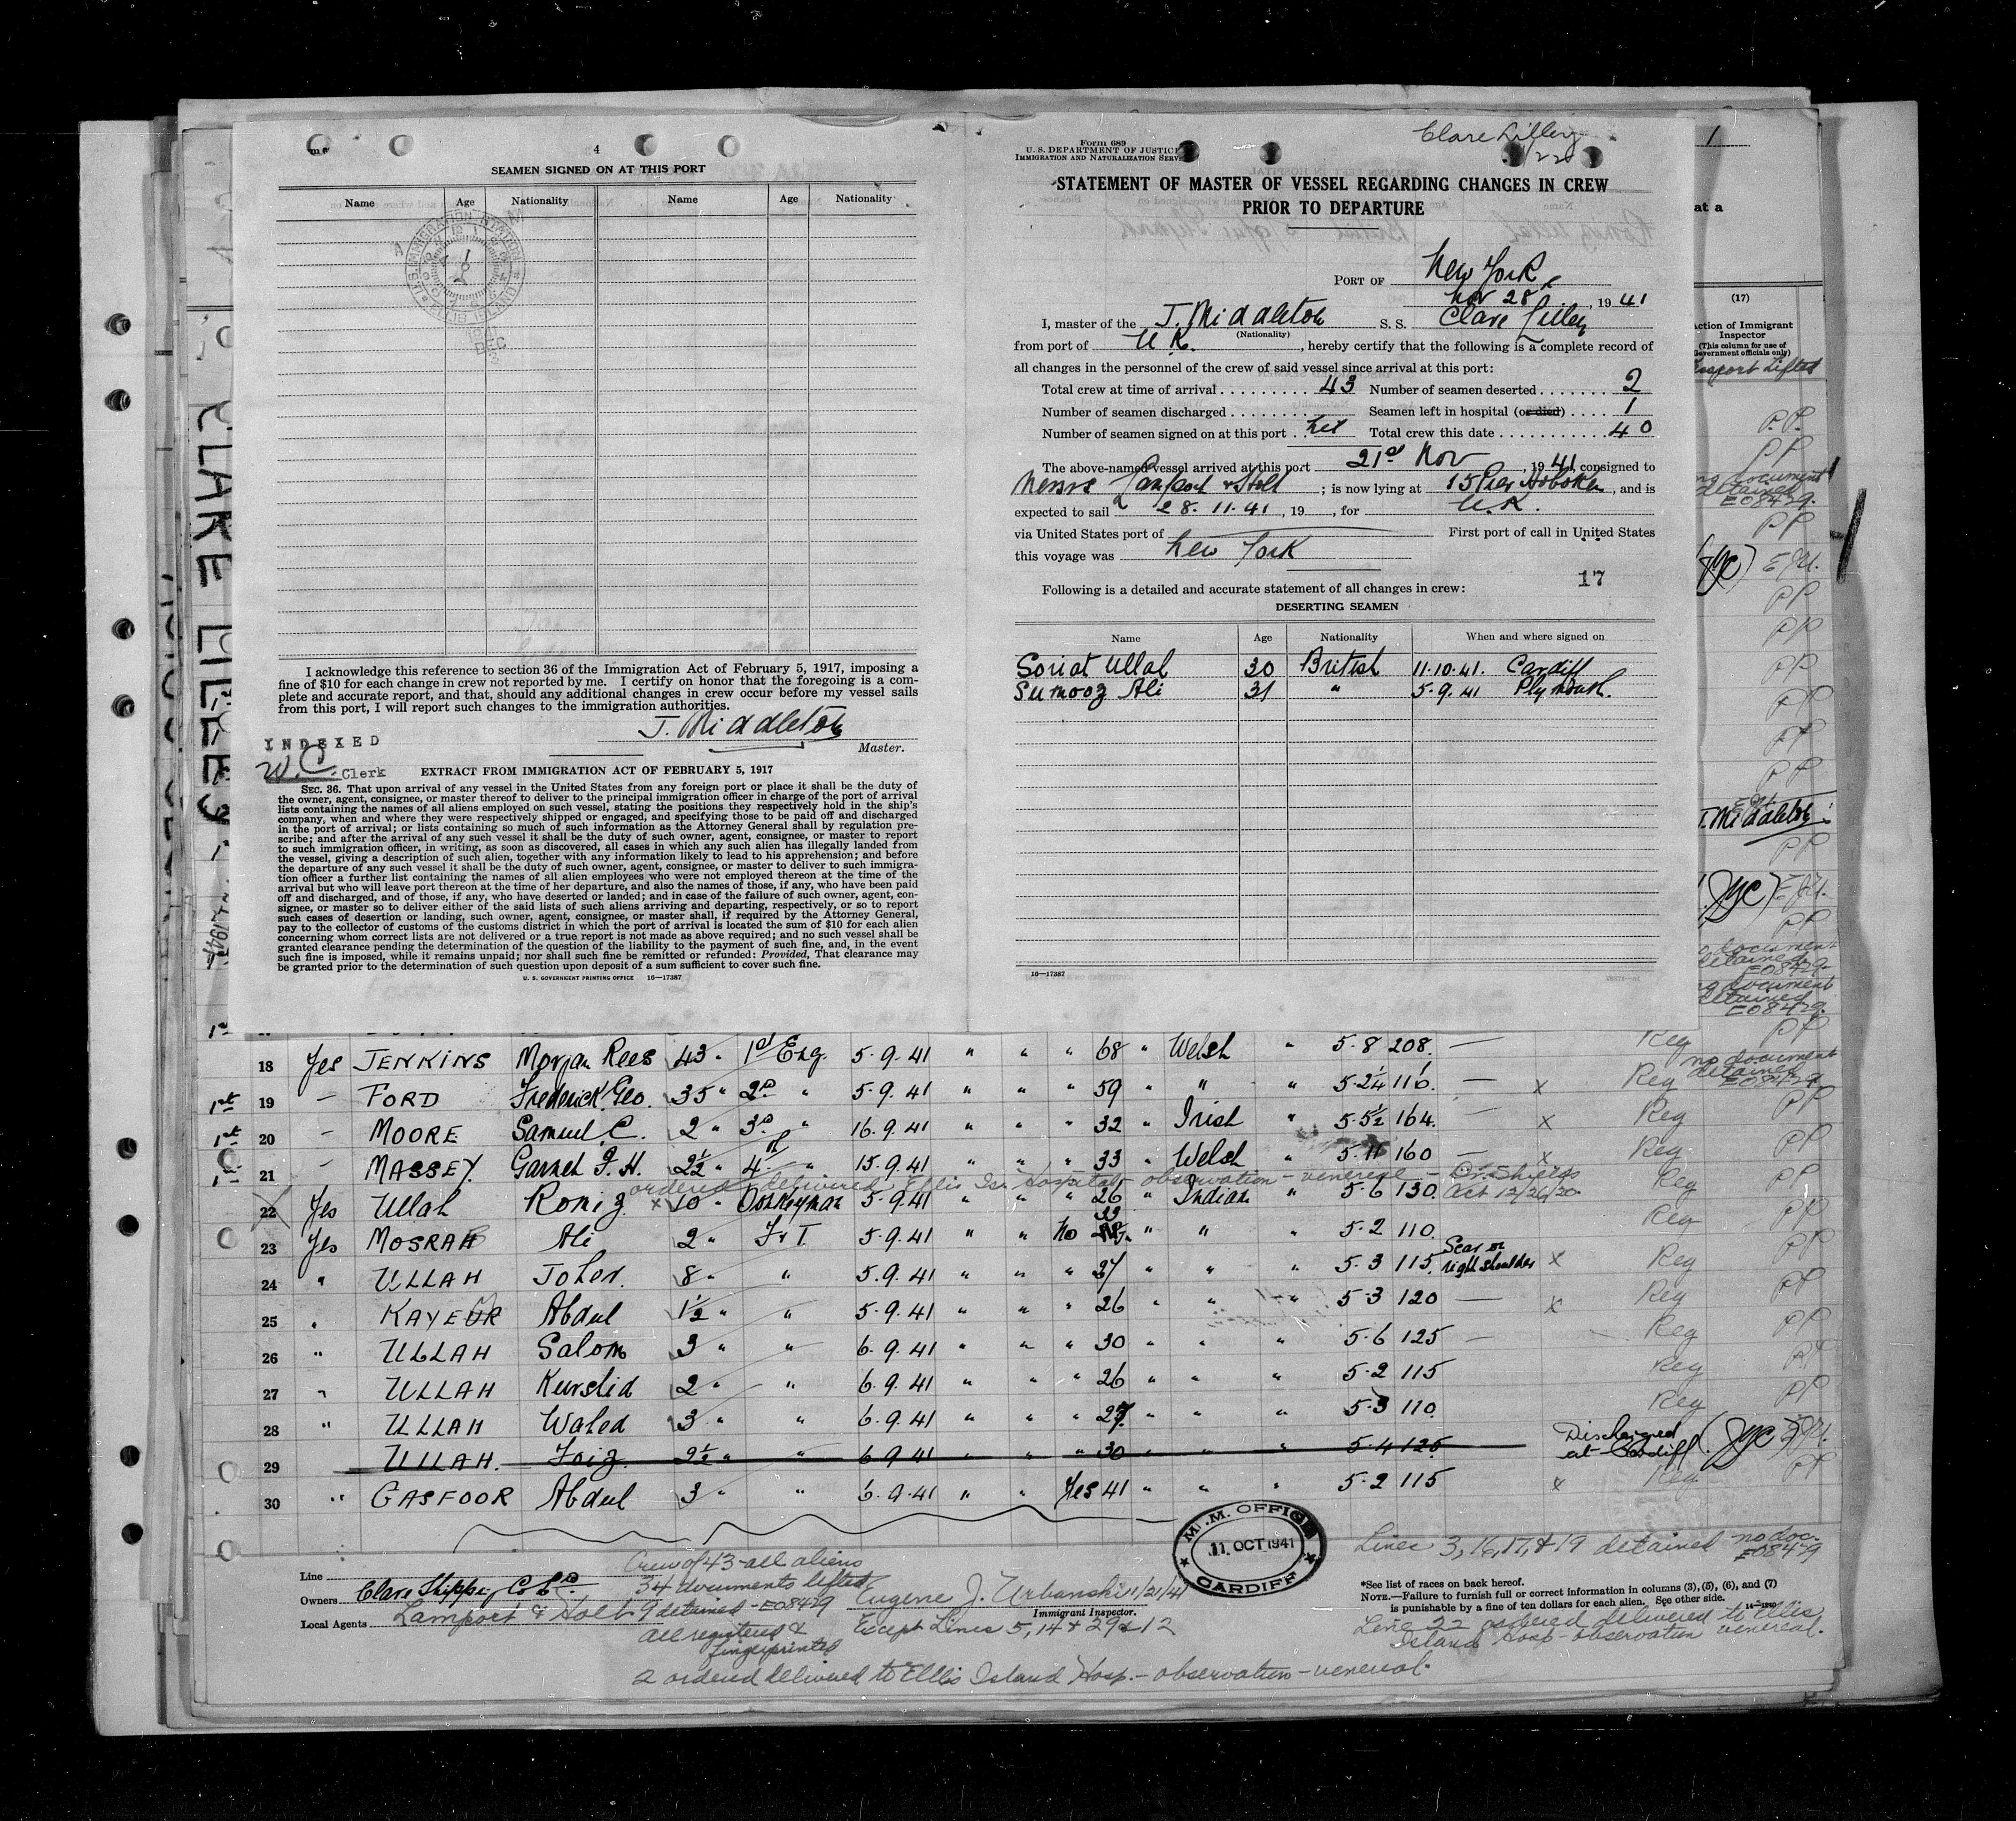 4
SEAMEN SIGNED ON AT THIS PORT
Name Age Nationality Name Age Nationality
U.S. IMMIGRATION STATION
ELLIS ISLAND
DEC
I acknowledge this reference to section 36 of the Immigration Act of February 5, 1917, imposing a
fine of $10 for each change in crew not reported by me. I certify on honor that the foregoing is a com-
plete and accurate report, and that, should any additional changes in crew occur before my vessel sails
from this port, I will report such changes to the immigration authorities.
J. Middleton
Master.
INDEXED
W.C. Clerk
EXTRACT FROM IMMIGRATION ACT OF FEBRUARY 5, 1917
SEC. 36. That upon arrival of any vessel in the United States from any foreign port or place it shall be the duty of
the owner, agent, consignee, or master thereof to deliver to the principal immigration officer in charge of the port of arrival
lists containing the names of all aliens employed on such vessel, stating the positions they respectively hold in the ship's
company, when and where they were respectively shipped or engaged, and specifying those to be paid off and discharged
in the port of arrival; or lists containing so much of such information as the Attorney General shall by regulation pre-
scribe; and after the arrival of any such vessel it shall be the duty of such owner, agent, consignee, or master to report
to such immigration officer, in writing, as soon as discovered, all cases in which any such alien has illegally landed from
the vessel, giving a description of such alien, together with any information likely to lead to his apprehension; and before
the departure of any such vessel it shall be the duty of such owner, agent, consignee, or master to deliver to such immigra-
tion officer a further list containing the names of all alien employees who were not employed thereon at the time of the
arrival but who will leave port thereon at the time of her departure, and also the names of those, if any, who have been paid
off and discharged, and of those, if any, who have deserted or landed; and in case of the failure of such owner, agent, con-
signee, or master so to deliver either of the said lists of such aliens arriving and departing, respectively, or so to report
such cases of desertion or landing, such owner, agent, consignee, or master shall, if required by the Attorney General,
pay to the collector of customs of the customs district in which the port of arrival is located the sum of $10 for each alien
concerning whom correct lists are not delivered or a true report is not made as above required; and no such vessel shall be
granted clearance pending the determination of the question of the liability to the payment of such fine, and, in the event
such fine is imposed, while it remains unpaid; nor shall such fine be remitted or refunded: Provided, That clearance may
be granted prior to the determination of such question upon deposit of a sum sufficient to cover such fine.
U. S. GOVERNMENT PRINTING OFFICE 16—17387
CLARE LILLEY
Clare Lilley
Form 689
U. S. DEPARTMENT OF JUSTICE
IMMIGRATION AND NATURALIZATION SERV
STATEMENT OF MASTER OF VESSEL REGARDING CHANGES IN CREW
PRIOR TO DEPARTURE
PORT OF New York
Nov 28, 1941
I, master of the J. Middleton S. S. Clare Lilley
(Nationality)
from port of U.K., hereby certify that the following is a complete record of
all changes in the personnel of the crew of said vessel since arrival at this port:
Total crew at time of arrival 43 Number of seamen deserted 2
Number of seamen discharged Seamen left in hospital (or died) 1
Number of seamen signed on at this port nil Total crew this date 40
The above-named vessel arrived at this port 21st Nov, 1941, consigned to
Messrs Lamport & Holt; is now lying at 15 Pier Hoboken, and is
expected to sail 28.11.41, 19, for U.K.
via United States port of First port of call in United States
this voyage was New York
17
Following is a detailed and accurate statement of all changes in crew:
DESERTING SEAMEN
Name Age Nationality When and where signed on
Soriat Ullah 30 British 11.10.41. Cardiff
Sumooz Ali 31 " 5.9.41 Plymouth.
16—17387
1
at a
(17)
Action of Immigrant
Inspector
(This column for use of
Government officials only)
Passport Lifted
P.P.
PP
no document
detained
E08429.
PP
(JYC) E.J.U.
PP
PP
PP
PP
PP
PP
J. Middleton
PP
(JYC) E.J.U.
PP
no document
detained
E08429
no document
detained
E08429.
PP
18 Yes JENKINS Morgan Rees 43 " 1st Eng. 5.9.41 " " " 68 " Welsh " 5.8 208. — Reg no document detained E08429
19 1st — FORD Frederick Geo. 35 " 2nd " 5.9.41 " " " 59 " " " 5.2¼ 116. — x Reg PP
20 1st — MOORE Samuel C. 2 " 3rd " 16.9.41 " " " 32 " Irish " 5.5½ 164. — x Reg PP
21 1st — MASSEY Garnet J. H. 2½ " 4th " 15.9.41 " " " 33 " Welsh " 5.11 160 — x Reg PP
ordered delivered Ellis Is. Hospital - observation - venereal - Dr. Shields
22 Yes Ullah Roniz x 10 " Donkeyman 5.9.41 " " " 26 " Indian " 5.6 130. Act 12/26/20 Reg PP
23 Yes MOSRAB Ali 2 " F & T. 5.9.41 " " No 22 " " " 5.2 110. Reg PP
24 " ULLAH Toher. 8 " " 5.9.41 " " " 27 " " " 5.3 115 Scar on right shoulder x Reg PP
25 " KAYEUR Abdul 1½ " " 5.9.41 " " " 26 " " " 5.3 120 — x Reg PP
26 " ULLAH Salom 3 " " 6.9.41 " " " 30 " " " 5.6 125 — Reg PP
27 " ULLAH Kurshid 2 " " 6.9.41 " " " 26 " " " 5.2 115 Reg PP
28 " ULLAH Waled 3 " " 6.9.41 " " " 27. " " " 5.3 110. Reg PP
29 ULLAH. Foiz 2½ " " 6 9 41 " " " 30 " " " 5.4 125 Discharged at Cardiff. (JYC) E.J.U.
30 " GASFOOR Abdul 3 " " 6.9.41 " " Yes 41 " " " 5.2 115 x Reg. PP
M.M. OFFICE
11 OCT 1941
CARDIFF
Lines 3, 16, 17, & 19 detained no doc. E08429
Crew of 43 - all aliens
34 documents lifted
Line
Owners Clare Shipping Co Ltd.
Local Agents Lamport & Holt 9 detained - E08429
Eugene J. Urbanski 11/21/41
Immigrant Inspector.
Except Lines 5, 14 & 29 & 12
all registered &
fingerprinted
2 ordered delivered to Ellis Island Hosp. - observation - venereal.
*See list of races on back hereof.
NOTE.—Failure to furnish full or correct information in columns (3), (5), (6), and (7)
is punishable by a fine of ten dollars for each alien. See other side.
Line 22 ordered delivered to Ellis
Island Hosp - observation venereal.